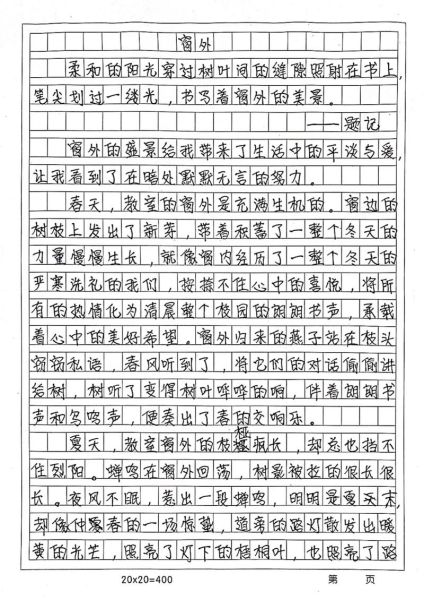 窗外
柔和的阳光穿过树叶间的缝隙照射在书上，
笔尖划过一缕光，书写着窗外的美景。
——题记
窗外的盛景给我带来了生活中的平淡与爱，
让我看到了在暗处默默无言的努力。
春天，教室的窗外是充满生机的。窗边的
树枝上发出了新芽，带着积蓄了一整个冬天的
力量慢慢生长，就像窗内经历了一整个冬天的
严寒洗礼的我们，按捺不住心中的喜悦，将所
有的热情化为清晨整个校园的朗朗书声，承载
着心中的美好希望。窗外归来的燕子站在枝头
窃窃私语，春风听到了，将它们的对话偷偷讲
给树，树听了变得树叶哗哗的响，伴着朗朗书
声和鸟鸣声，便奏出了春的交响乐。
夏天，教室窗外的枝桠疯长，却总也挡不
住烈阳。蝉鸣在窗外回荡，树影被拉的很长很
长。夜风不眠，荡出一段蝉鸣，明明是夏天末，
却像仲春的一场惊蛰，道旁的路灯散发出暖
黄的光芒，照亮了灯下的梧桐叶，也照亮了路
20x20=400 第 页